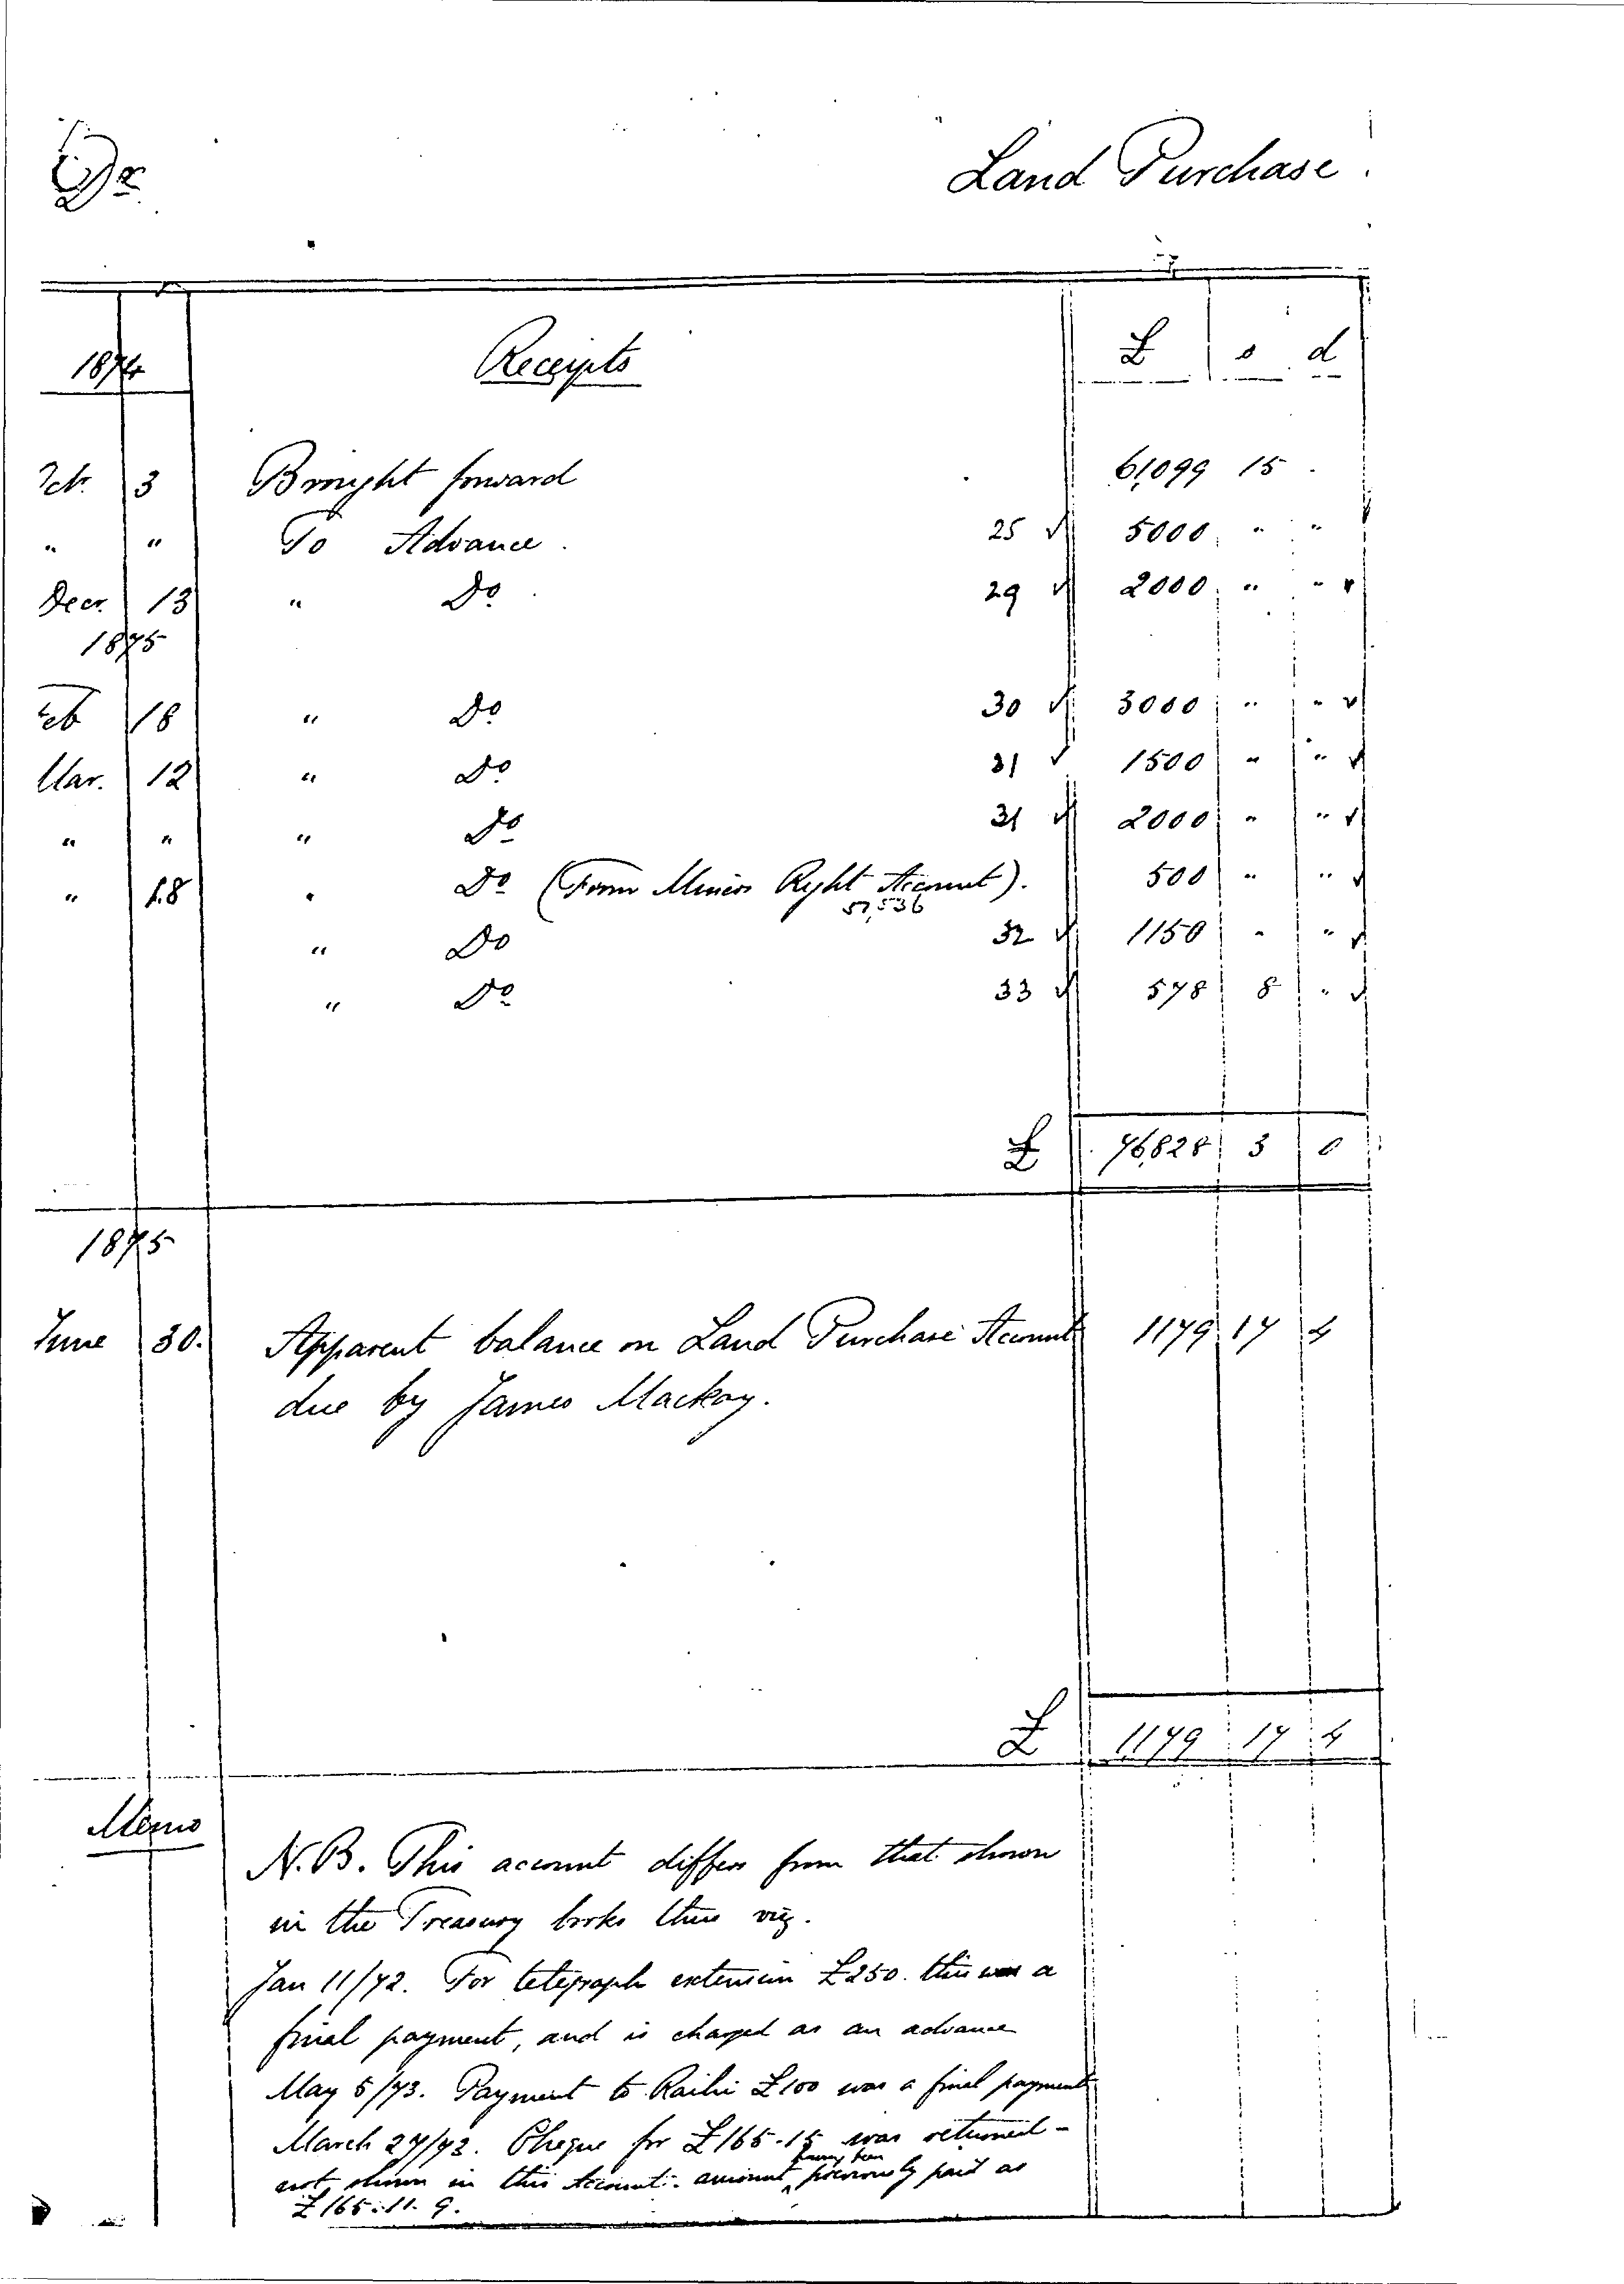 Dr
Land Purchase.
1874 Receipts £ s d
Oct. 3 Brought forward 61,099 15 .
" " To Advance. 25 √ 5000 " "
Decr. 13 " Do. 29 √ 2000 " " √
1875
Feb 18 " Do 30 √ 3000 " " √
Mar. 12 " Do 31 √ 1500 " " √
" " " Do 31 √ 2000 " " √
" 18 " Do (From Miners Right Account). 500 " " √
57,536
" Do 32 √ 1150 " " √
" Do 33 √ 578 8 " √
£ 76,828 3 0
1875
June 30. Apparent balance on Land Purchase Account 1179 17 4
due by James Mackay.
£ 1179 17 4
Memo
N.B. This account differs from that shown
in the Treasury books thus viz.
Jan 11/72. For telegraph extension £250. this was a
final payment, and is charged as an advance
May 5/73. Payment to Raihi £100 was a final payment
March 27/72. Cheque for £165.15 was returned -
having been
not shown in this Account. amount, previously paid as
£165:11.9.